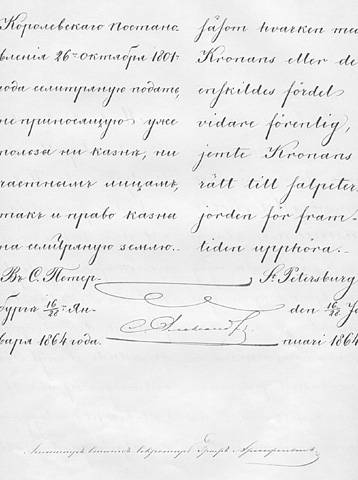 Королевскаго постано
вленія 26го октября 1801
года селитряную подать,
не приносящую уже
польза ни казнѣ, ни
частнымъ лицамъ,
такъ и право казны
на селитряную землю.
Въ С. Петер-
бургѣ 16/28го Ян-
варя 1864 года.
såsom hvarken med
Kronans eller de
enskildes fördel
vidare förenlig,
jemte Kronans
rätt till salpeter
jorden för fram-
tiden upphöra.
St Petersburg
den 16/28 Ja
nuari 1864
Александръ
Министръ Статсъ Секретарь Графъ Армфельтъ